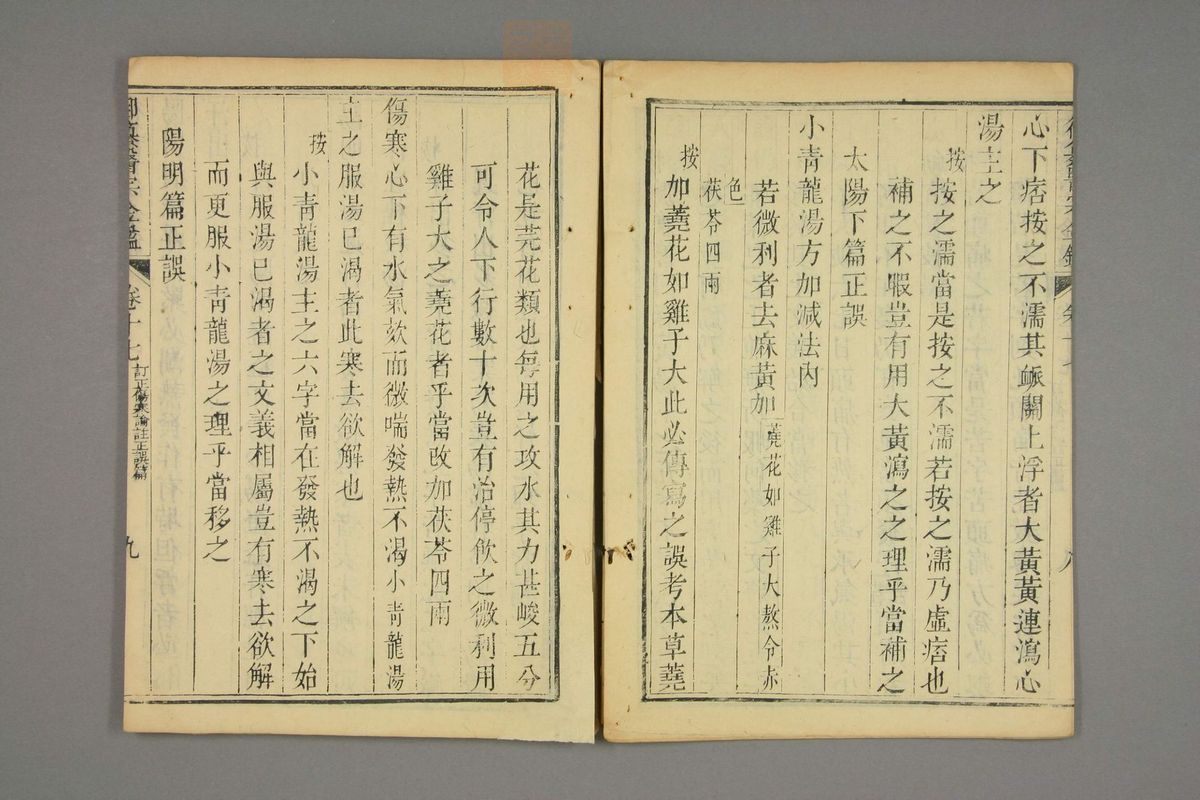 心下痞按之不濡其脈關上浮者大黃黃連瀉心
湯主之
按按之濡當是按之不濡若按之濡乃虛痞也
補之不暇豈有用大黃瀉之之理乎當補之
太陽下篇正誤
小靑龍湯方加減法內
若微利者去麻黃加蕘花如雞子大熬令赤
色
茯苓四兩
按加蕘花如雞子大此必傳寫之誤考本草蕘
花是芫花類也每用之攻水其力甚峻五分
可令人下行數十次豈有治停飮之微利用
雞子大之蕘花者乎當改加茯苓四兩
傷寒心下有水氣欬而微喘發熱不渴小靑龍湯
主之服湯已渴者此寒去欲解也
按小靑龍湯主之六字當在發熱不渴之下始
與服湯已渴者之文義相屬豈有寒去欲解
而更服小靑龍湯之理乎當移之
陽明篇正誤
御纂醫宗金鑑 卷十七 訂正傷寒論註正誤篇 九